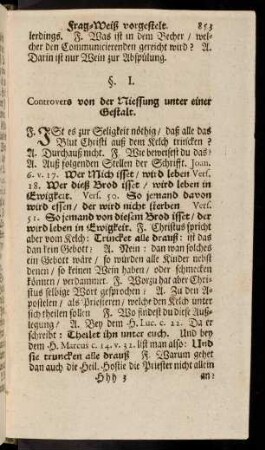 Frag-Weiß vorgestelt. 853
lerdings. F. Was ist in dem Becher / wel-
cher den Communicierenden gereicht wird? A.
Darin ist nur Wein zur Abspülung.
§. I.
Controvers von der Niessung unter einer
Gestalt.
F. Jst es zur Seligkeit nöthig / daß alle das
Blut Christi auß dem Kelch trincken?
A. Durchauß nicht. F. Wie beweisest du das?
A. Auß folgenden Stellen der Schrifft. Joan.
6. v. 17. Wer Mich isset / wird leben Vers.
18. Wer dieß Brod isset / wird leben in
Ewigkeit. Vers. 50. So jemand davon
wird essen / der wird nicht sterben Vers.
51. So jemand von diesem Brod isset / der
wird leben in Ewigkeit. F. Christus spricht
aber vom Kelch: Truncket alle drauß: ist das
dan kein Gebott? A. Nein: dan wan solches
ein Gebott wäre / so würden alle Kinder nebst
denen / so keinen Wein haben / oder schmecken
können / verdammt. F. Worzu hat aber Chri-
stus selbige Wort gesprochen? A. Zu den A-
postelen / als Priesteren / welche den Kelch unter
sich theilen sollen F. Wo findest du diese Auß-
legung / A. Bey dem H. Luc. c. 22. Da er
schreibt: Theilet ihn unter euch. Und bey
dem H. Marcus c. 14. v. 32. list man also: Und
sie truncken alle drauß F. Warum gehet
dan auch die Heil. Hostie die Priester nicht allein
Hhh 3 an?